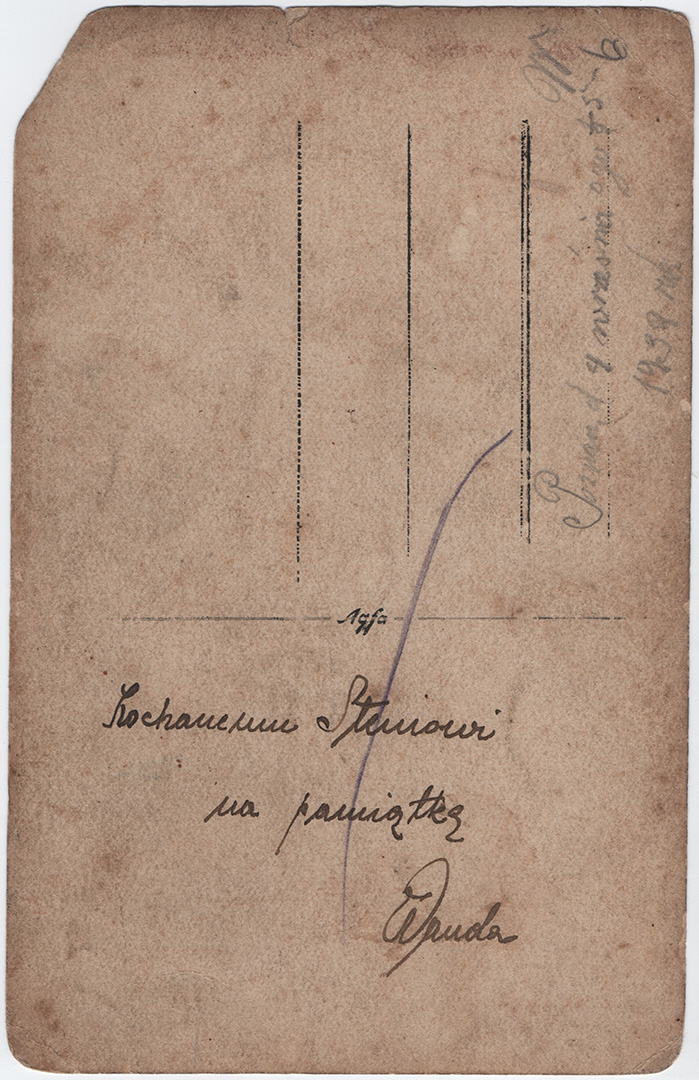 Poznań d 9 września
1939 r
Agfa
Kochanemu Steniowi
na pamiątkę
Wanda